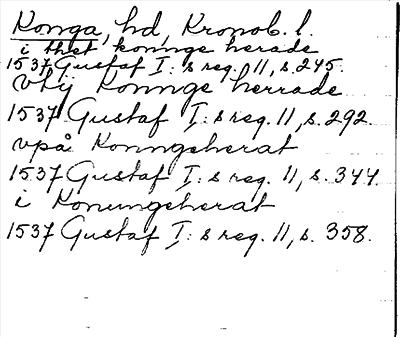 Konga, hd, Kronob. l.
i thet konnge herade
1537 Gustaf I: s reg. 11, s. 245.
vthij Konnge herrade
1537 Gustaf I: s reg. 11, s. 292.
vpå Konngeherat
1537 Gustaf I: s reg. 11, s. 344.
i Konungeherat
1537 Gustaf I: s reg. 11, s. 358.